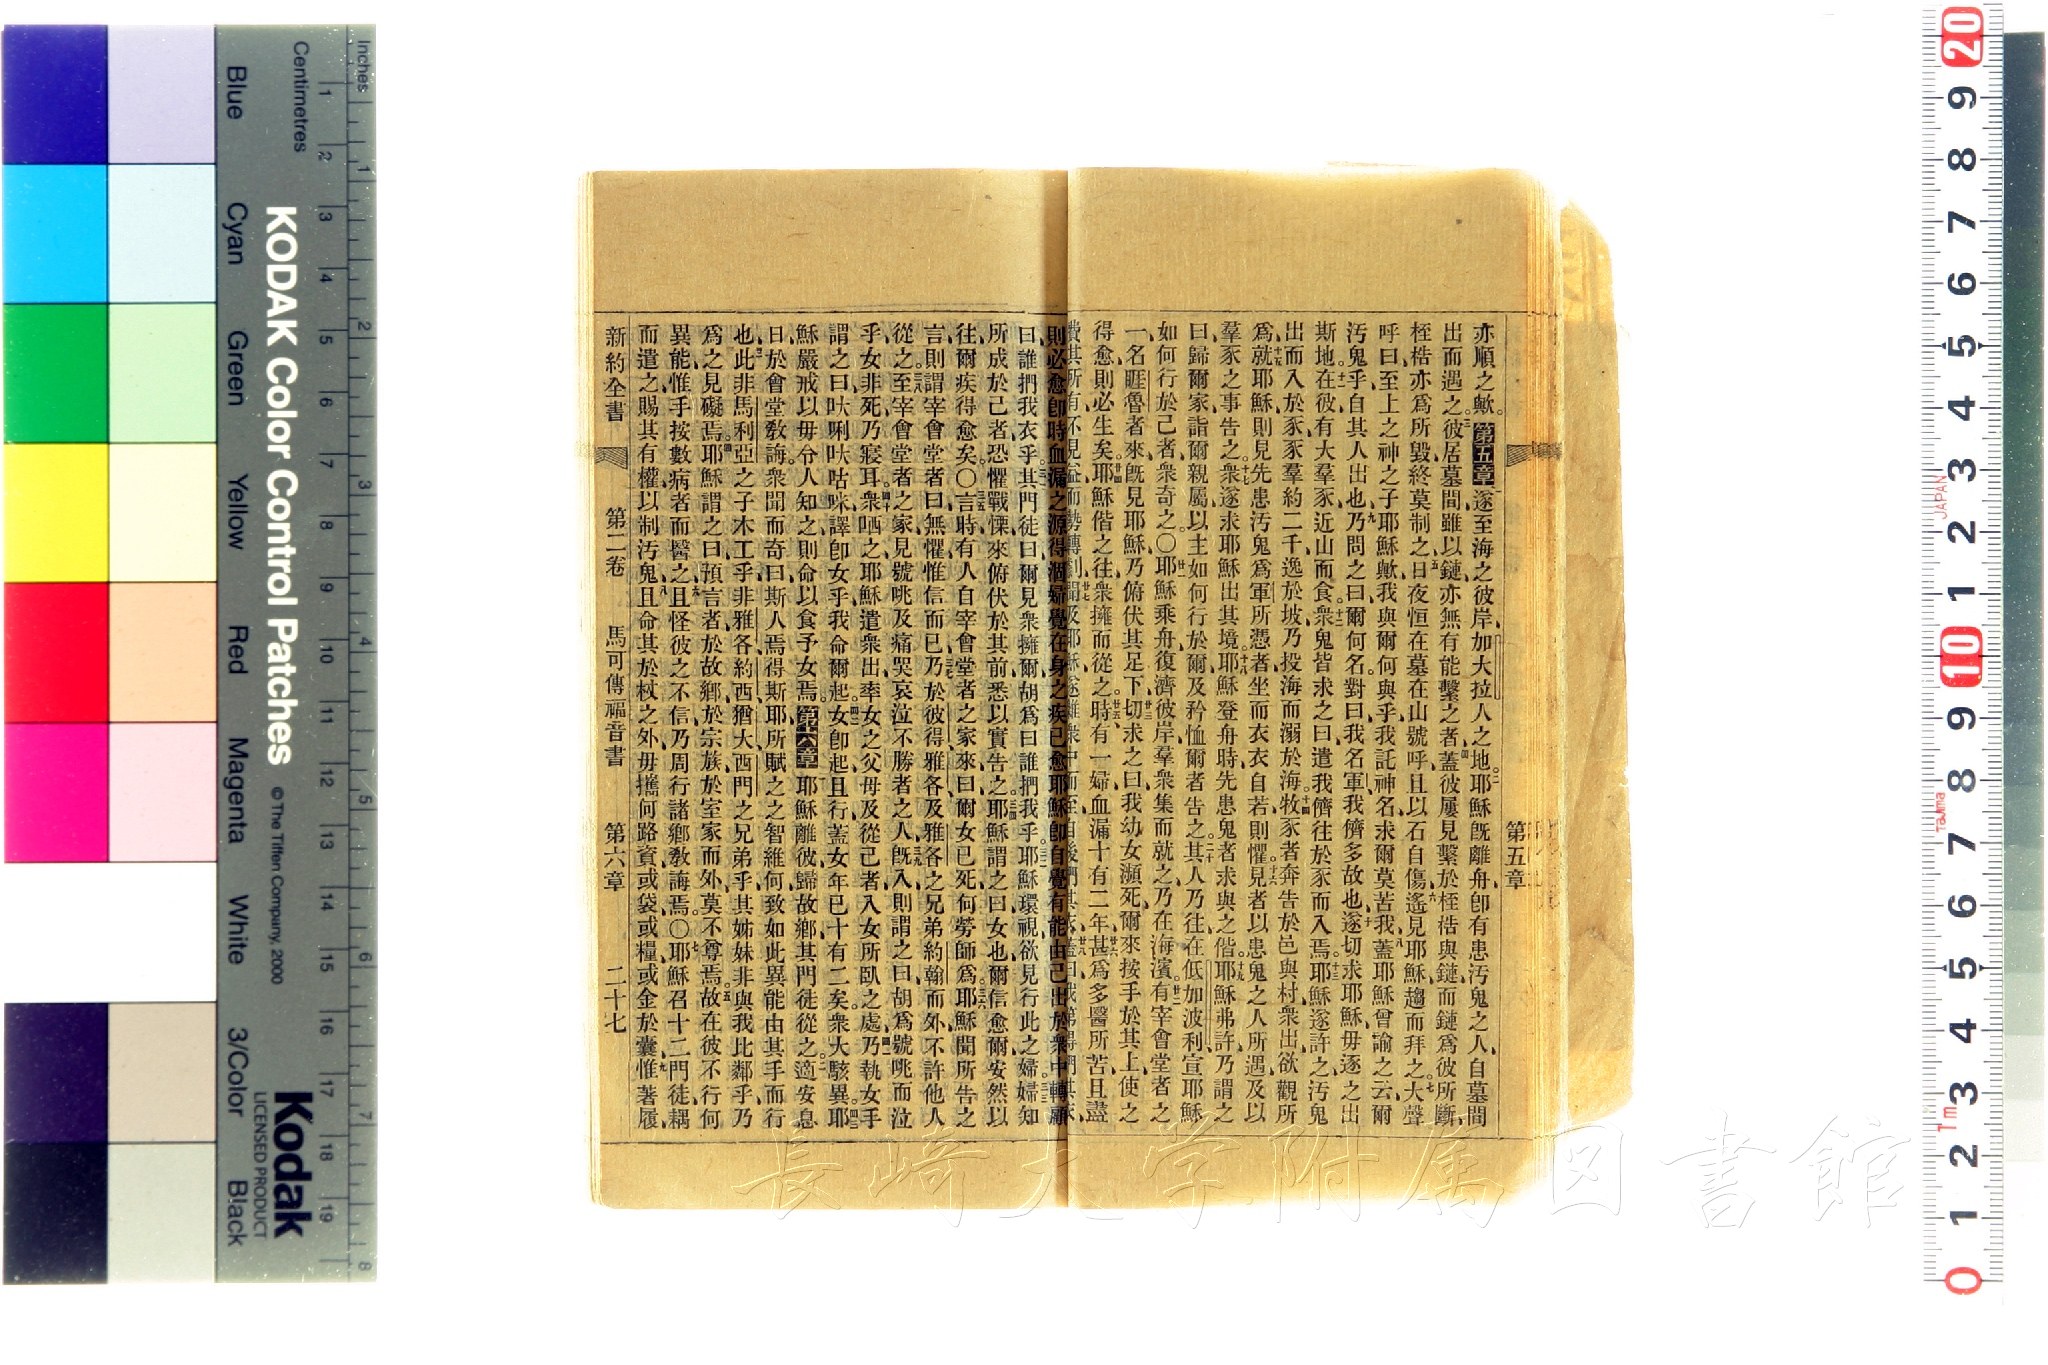 亦順之歟第五章遂至海之彼岸加大拉人之地耶穌旣離舟卽有患汚鬼之人自墓間
出而遇之彼居墓間雖以鏈亦無有能繫之者蓋彼屢見繫於桎梏與鏈而鏈爲彼所斷
桎梏亦爲所毀終莫制之日夜恒在墓在山號呼且以石自傷遙見耶穌趨而拜之大聲
呼曰至上之神之子耶穌歟我與爾何與乎我託神名求爾莫苦我蓋耶穌曾諭之云爾
汚鬼乎自其人出也乃問之曰爾何名對曰我名軍我儕多故也遂切求耶穌毋逐之出
斯地在彼有大羣豕近山而食衆鬼皆求之曰遣我儕往於豕而入焉耶穌遂許之汚鬼
出而入於豕豕羣約二千逸於坡乃投海而溺於海牧豕者奔告於邑與村衆出欲觀所
爲就耶穌則見先患汚鬼爲軍所憑者坐而衣衣自若則懼見者以患鬼之人所遇及以
羣豕之事告之衆遂求耶穌出其境耶穌登舟時先患鬼者求與之偕耶穌弗許乃謂之
曰歸爾家詣爾親屬以主如何行於爾及矜恤爾者告之其人乃往在低加波利宣耶穌
如何行於己者衆奇之〇耶穌乘舟復濟彼岸羣衆集而就之乃在海濱有宰會堂者之
一名睚魯者來旣見耶穌乃俯伏其足下切求之曰我幼女瀕死爾來按手於其上使之
得愈則必生矣耶穌偕之往衆擁而從之時有一婦血漏十有二年甚爲多醫所苦且盡
費其所有不見益而勢轉劇聞及耶穌遂雜衆中而至自後捫其衣蓋曰我第得捫其衣
則必愈卽時血漏之源得涸婦覺在身之疾已愈耶穌卽自覺有能由己出於衆中轉顧
曰誰捫我衣乎其門徒曰爾見衆擁爾胡爲曰誰捫我乎耶穌環視欲見行此之婦婦知
所成於己者恐懼戰慄來俯伏於其前悉以實告之耶穌謂之曰女也爾信愈爾安然以
往爾疾得愈矣〇言時有人自宰會堂者之家來曰爾女已死何勞師爲耶穌聞所告之
言則謂宰會堂者曰無懼惟信而已乃於彼得雅各及雅各之兄弟約翰而外不許他人
從之至宰會堂者之家見號咷及痛哭哀泣不勝者之人旣入則謂之曰胡爲號咷而泣
乎女非死乃寢耳衆哂之耶穌遣衆出牽女之父母及從己者入女所臥之處乃執女手
謂之曰呔唎呔咕咪譯卽女乎我命爾起女卽起且行蓋女年已十有二矣衆大駭異耶
穌嚴戒以毋令人知之則命以食予女焉第六章耶穌離彼歸故鄕其門徒從之適安息
日於會堂敎誨衆聞而奇曰斯人焉得斯耶所賦之之智維何致如此異能由其手而行
也此非馬利亞之子木工乎非雅各約西猶大西門之兄弟乎其姊妹非與我比鄰乎乃
爲之見礙焉耶穌謂之曰預言者於故鄕於宗族於室家而外莫不尊焉故在彼不行何
異能惟手按數病者而醫之且怪彼之不信乃周行諸鄕敎誨焉〇耶穌召十二門徒耦
而遣之賜其有權以制汚鬼且命其於杖之外毋攜何路資或袋或糧或金於囊惟著履
新約全書 第二卷 馬可傳福音書 第六章 二十七
第五章
長崎大学附属図書館
KODAK Color Control Patches
© The Tiffen Company, 2000
Kodak
LICENSED PRODUCT
Inches
Centimetres
Blue Cyan Green Yellow Red Magenta White 3/Color Black
1 2 3 4 5 6 7 8 9 10 11 12 13 14 15 16 17 18 19
1 2 3 4 5 6 7 8
20 9 8 7 6 5 4 3 2 1 10 9 8 7 6 5 4 3 2 1 0
JAPAN
Tajima
Tm